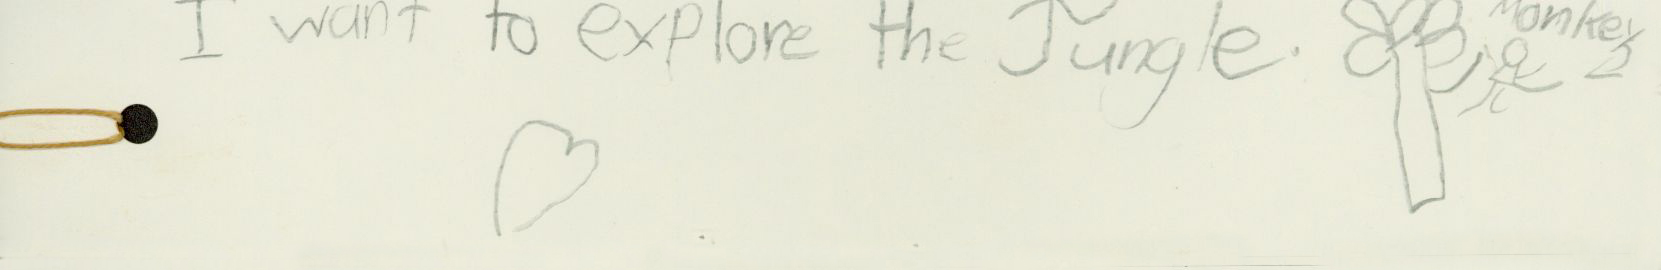 I want to explore the Jungle.
Monkey